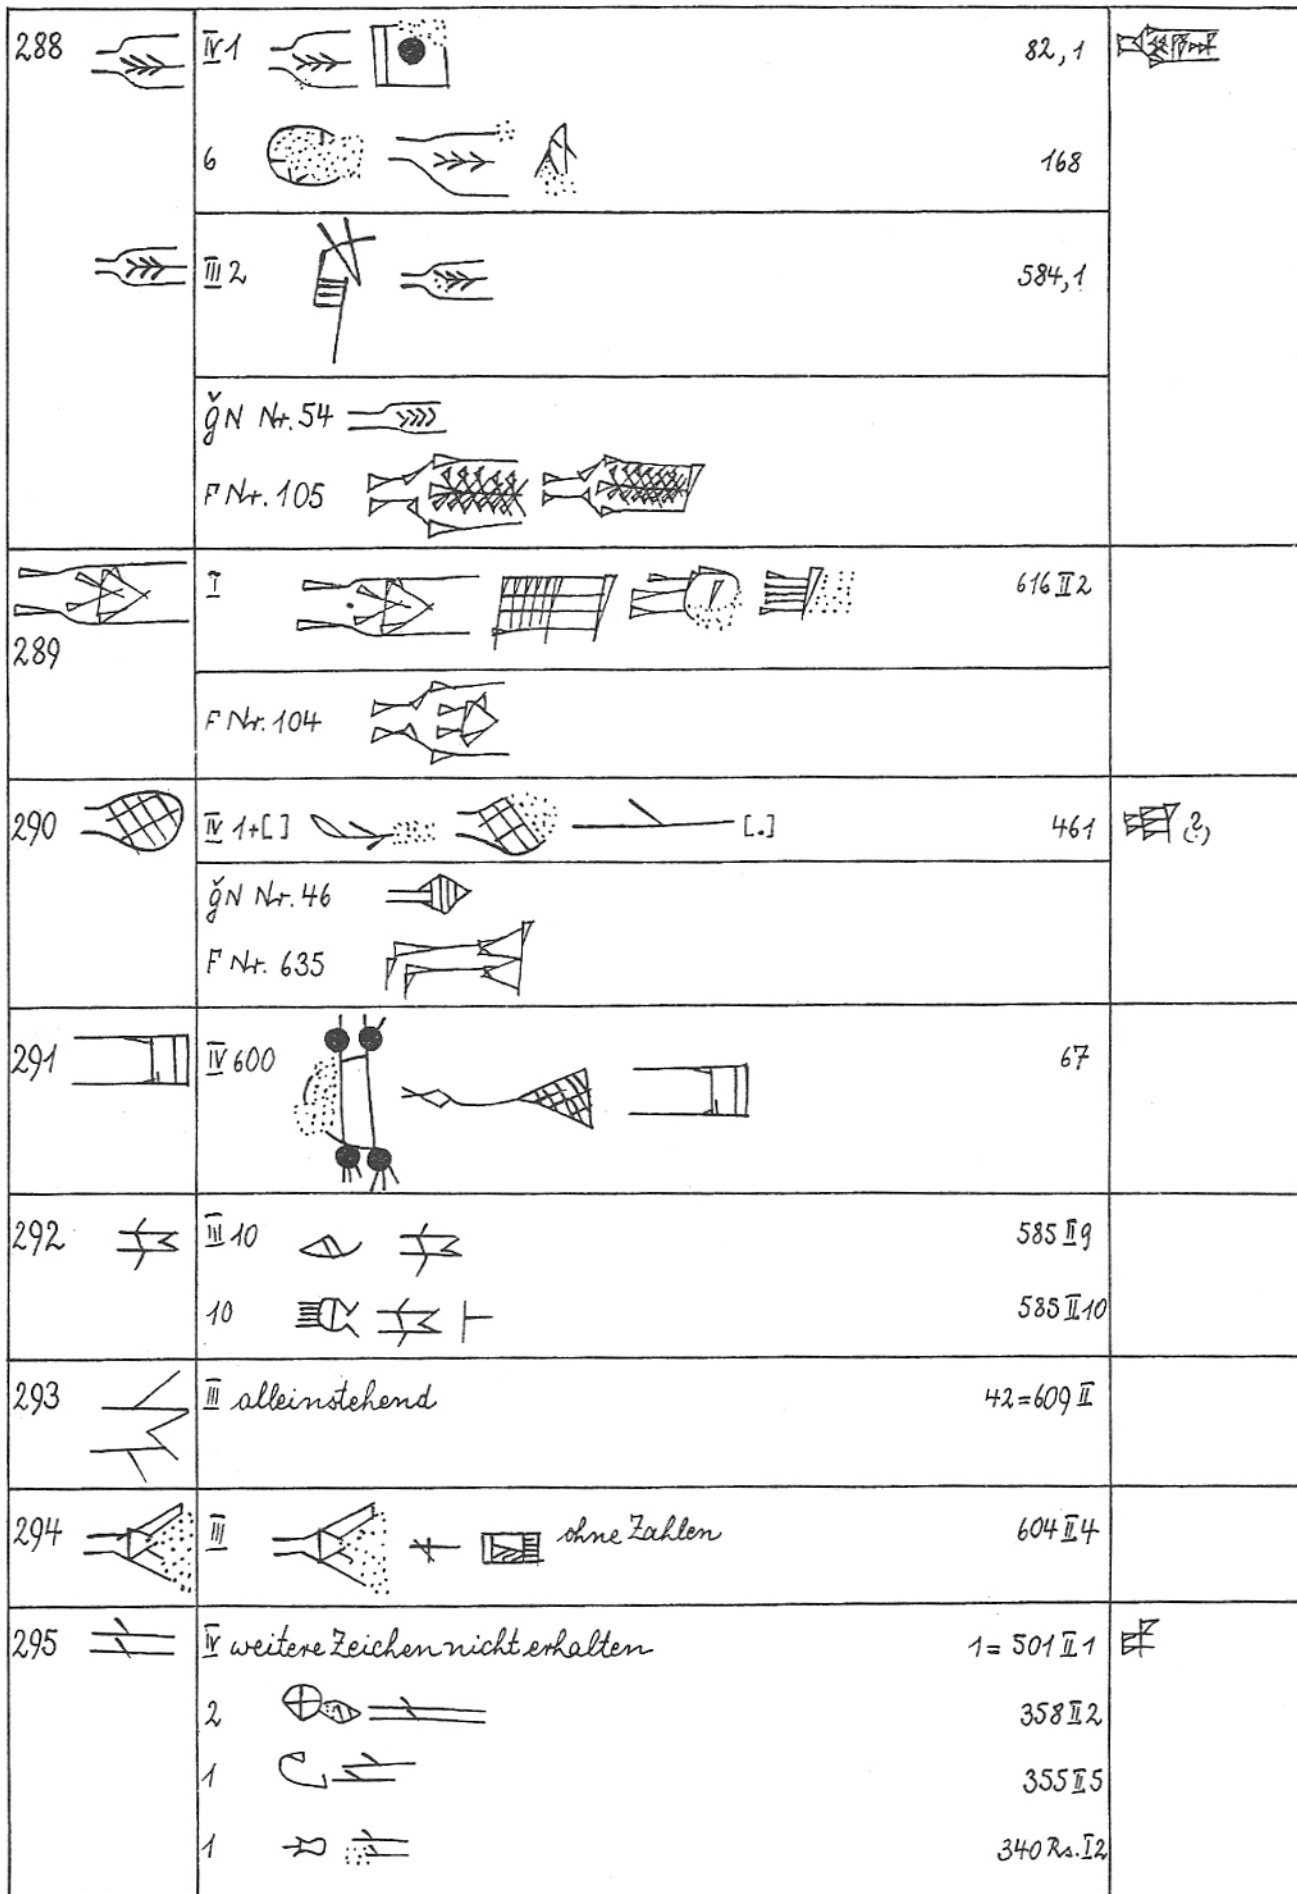 288 IV 1 82,1
6 168
III 2 584,1
ǧN Nr. 54
F Nr. 105
I 616 II 2
289
F Nr. 104
290 IV 1+[ ] [.] 461 (?)
ǧN Nr. 46
F Nr. 635
291 IV 600 67
292 III 10 585 II 9
10 585 II 10
293 III alleinstehend 42=609 II
294 III ohne Zahlen 604 II 4
295 IV weitere Zeichen nicht erhalten 1=501 II 1
2 358 II 2
1 355 II 5
1 340 Rs. I 2